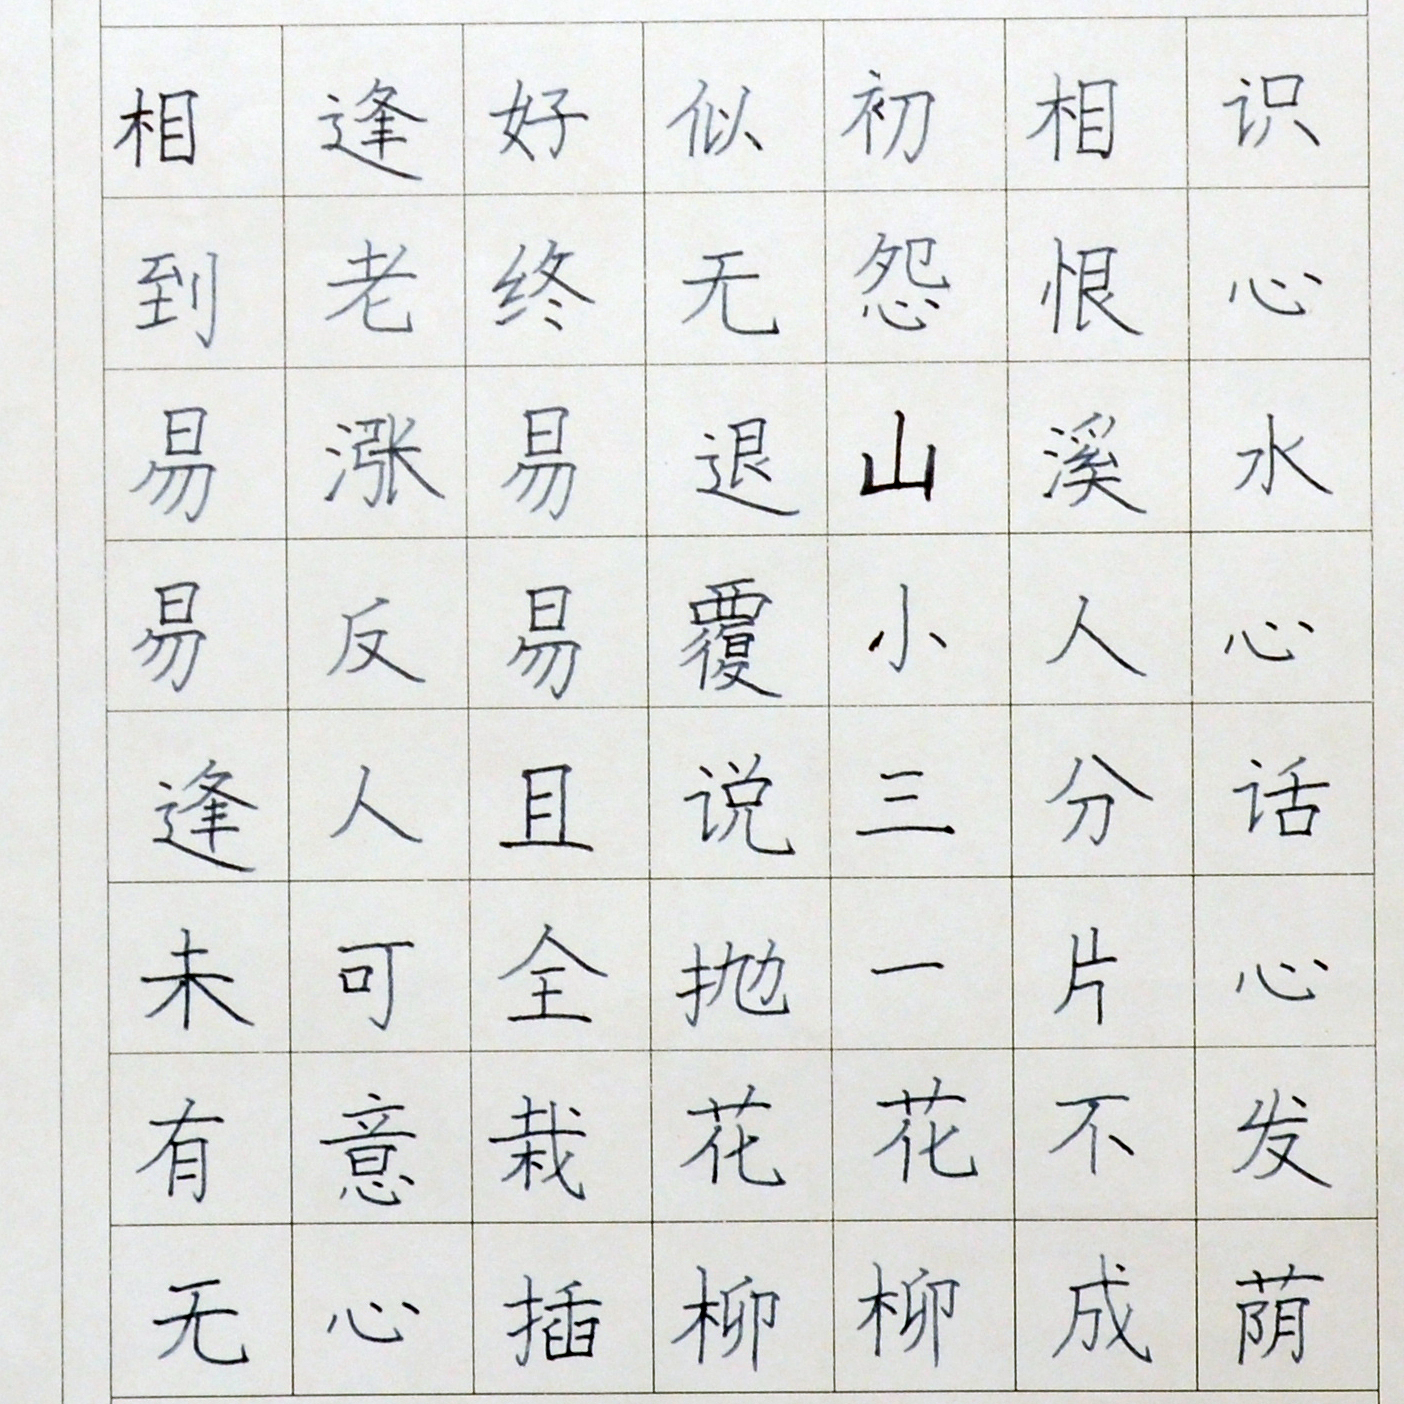 相逢好似初相识
到老终无怨恨心
易涨易退山溪水
易反易覆小人心
逢人且说三分话
未可全抛一片心
有意栽花花不发
无心插柳柳成荫